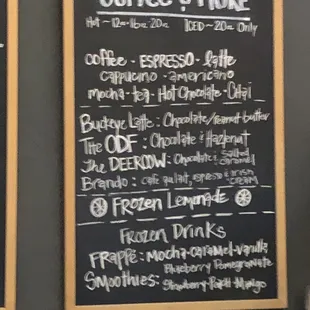 COFFEE & MORE
Hot ~ 12oz. 16oz. 20oz. ICED ~ 20oz Only
Coffee · ESPRESSO · latte
cappucino · americano
mocha · tea · Hot Chocolate · Chai
Buckeye Latte : Chocolate/Peanut-butter
THE ODF : Chocolate & Hazelnut
The DEERCOW : Chocolate & salted caramel
Brando : café au lait, espresso & irish CREAM
Frozen Lemonade
Frozen Drinks
FRAPPÉ : Mocha-caramel-vanilla
Smoothies : Blueberry Pomegranate
Strawberry-Peach-Mango